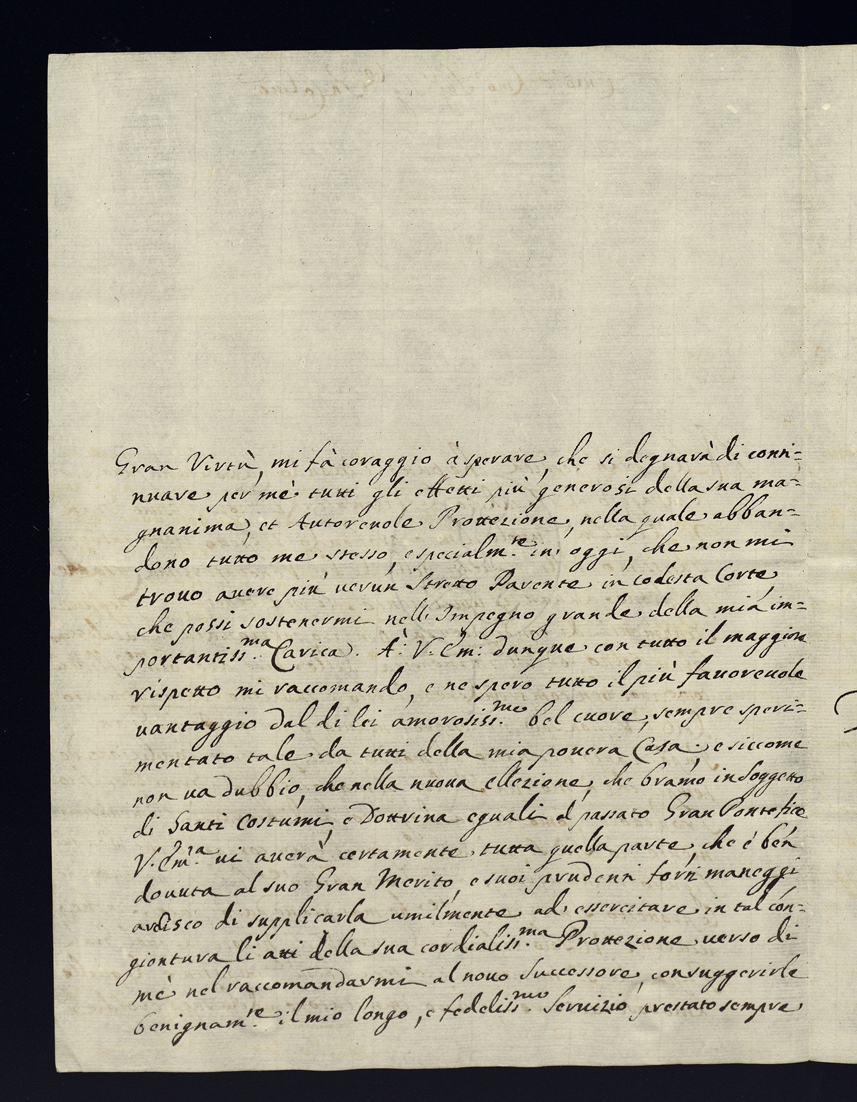 Gran Virtù, mi fà coraggio à sperare, che si degnarà di conti=
nuare per mè tutti gli effetti più generosi della sua ma=
gnanima, et Autoreuole Protezione, nella quale abban=
dono tutto me stesso, e specialm.te in oggi, che non mi
trouo auere più uerun Stretto Parente in codesta Corte
che possi sostenermi nell' Impegno grande della mia im=
portantiss.ma Carica. A: V: Em: dunque con tutto il maggiore
rispetto mi raccomando, e ne spero tutto il più fauoreuole
uantaggio dal di lei amorosiss.mo bel cuore, sempre speri=
mentato tale da tutti della mia pouera Casa; e siccome
non ua dubbio, che nella nuoua ellezione, che bramo in Soggetto
di Santi Costumi, e Dottrina eguali al passato Gran Pontefice
V. Em.a ui auerà certamente tutta quella parte, che é ben
douuta al suo Gran Merito, e suoi prudenti forti maneggi
ardisco di supplicarla umilmente ad essercitare in tal con=
giontura li atti della sua cordialiss.ma Protezione uerso di
mè nel raccomandarmi al nouo Successore, con suggerirle
benignam.te il mio longo, e fedeliss.mo Seruizio prestato sempre